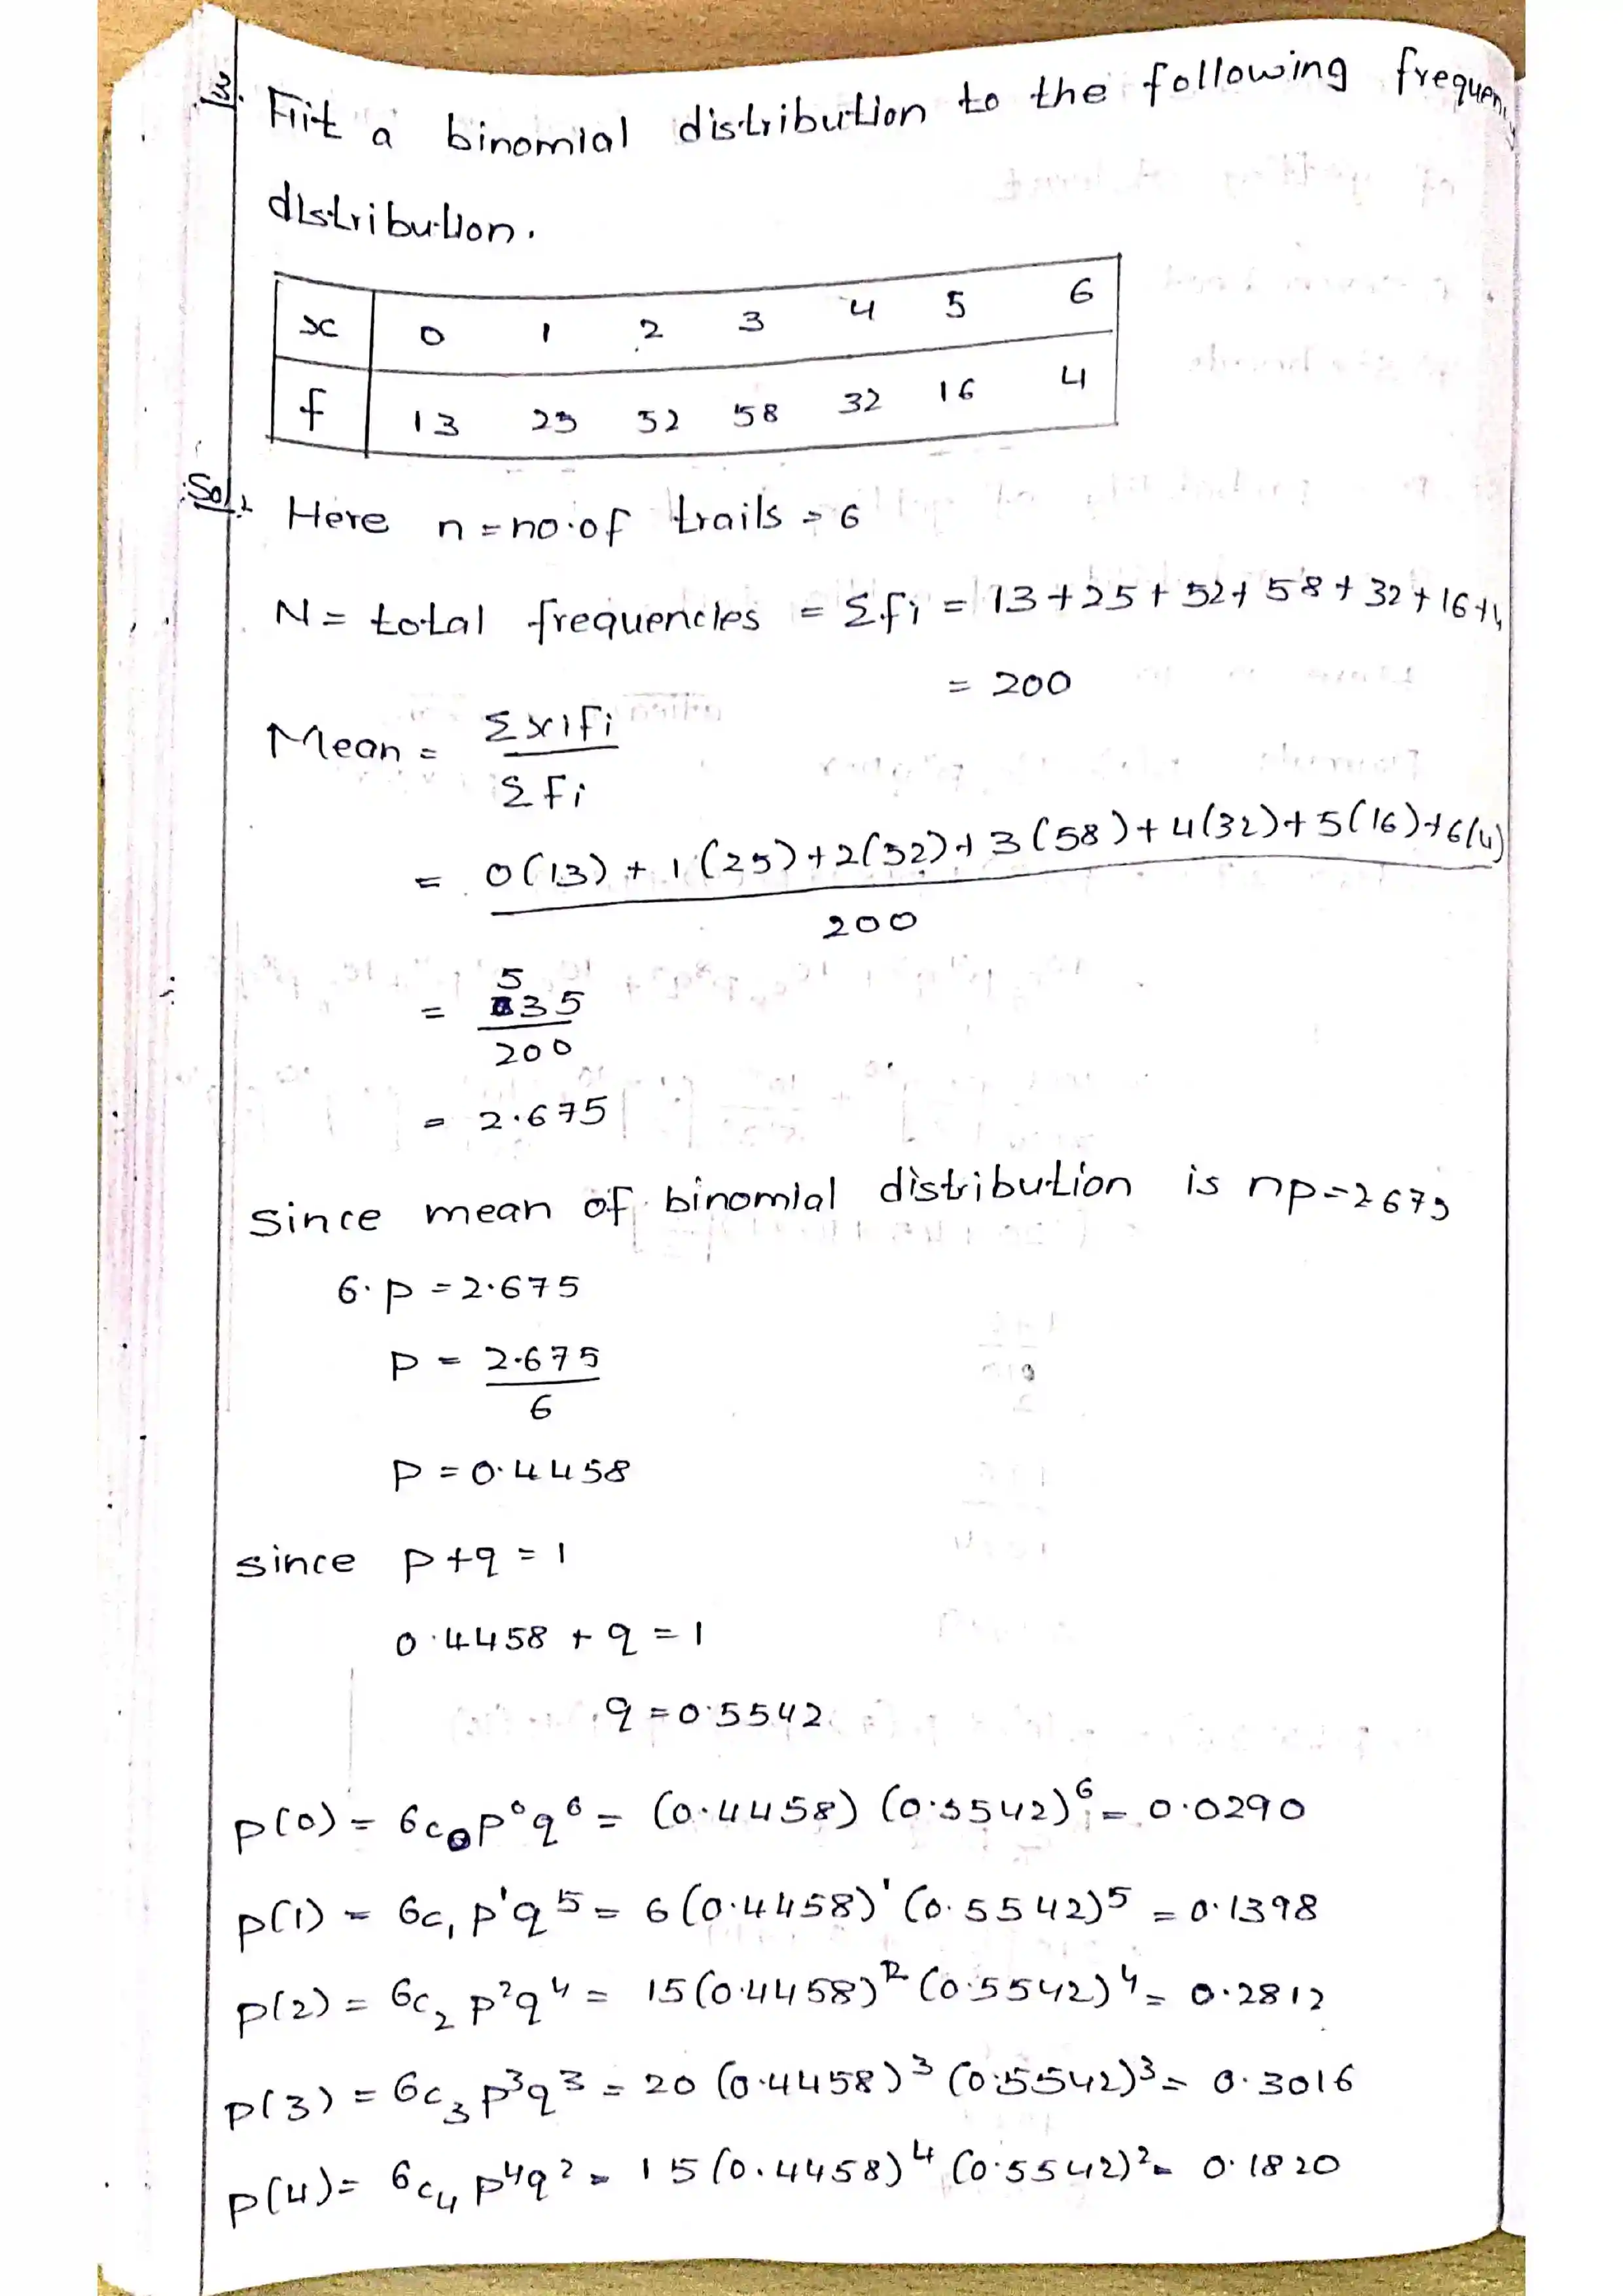 Fit a binomial distribution to the following frequen
distribution.
x 0 1 2 3 4 5 6
f 13 25 52 58 32 16 4
Sol:
Here n = no. of trails = 6
N = total frequencies = Σfi = 13+25+52+58+32+16+4
= 200
Mean = Σxifi / Σfi
= 0(13) + 1(25)+2(52)+3(58)+4(32)+5(16)+6(4) / 200
= 535 / 200
= 2.675
Since mean of binomial distribution is np=2675
6.p = 2.675
p = 2.675 / 6
p = 0.4458
since p+q = 1
0.4458 + q = 1
q = 0.5542
p(0) = 6c₀p⁰q⁶ = (0.4458) (0.5542)⁶ = 0.0290
p(1) = 6c₁p¹q⁵ = 6(0.4458)¹(0.5542)⁵ = 0.1398
p(2) = 6c₂p²q⁴ = 15(0.4458)²(0.5542)⁴ = 0.2812
p(3) = 6c₃p³q³ = 20(0.4458)³(0.5542)³ = 0.3016
p(4) = 6c₄p⁴q² = 15(0.4458)⁴(0.5542)² = 0.1820